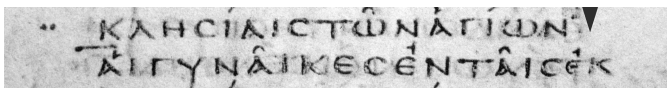 ΚΛΗCΙΑΙC ΤῶΝ ἉΓΙωΝ
ἁΙ ΓΥΝᾶΙΚΕC ἐΝ ΤᾶΙC ἐΚ